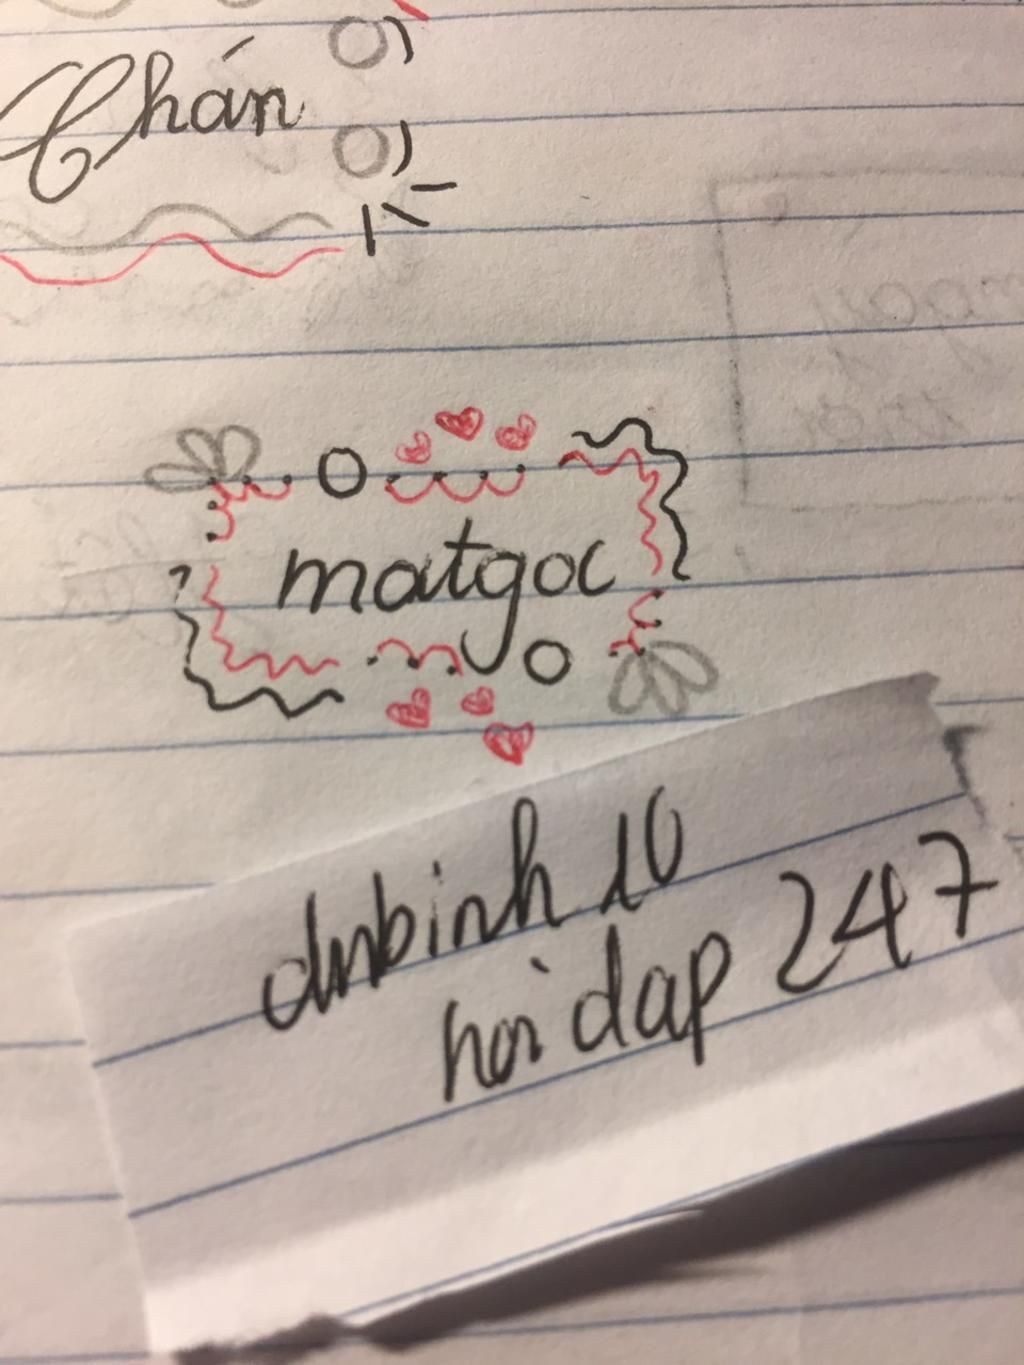 Chán
matgoc
dnbinh 10
hoi dap 247